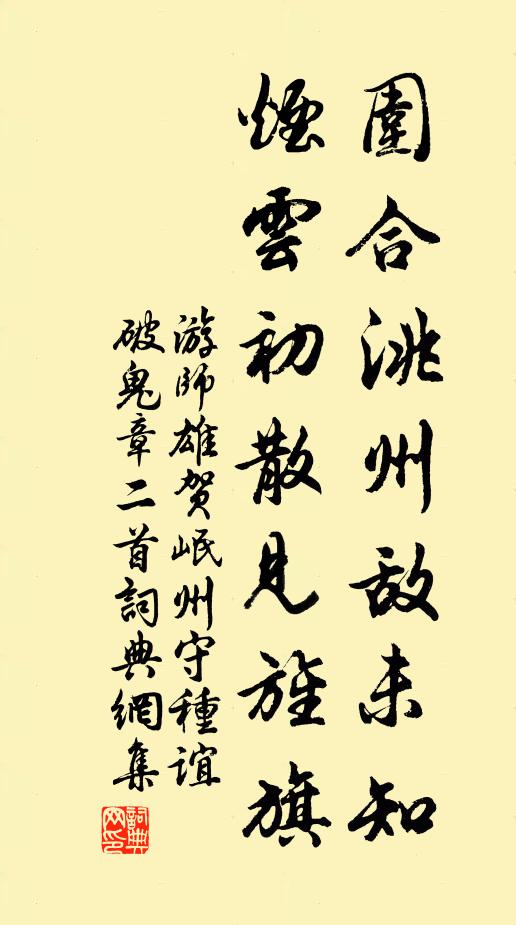 圍合洮州敵未知
煙雲初散見旌旗
游師雄賀岷州守種誼
破鬼章二首詞典網集
詞典網印